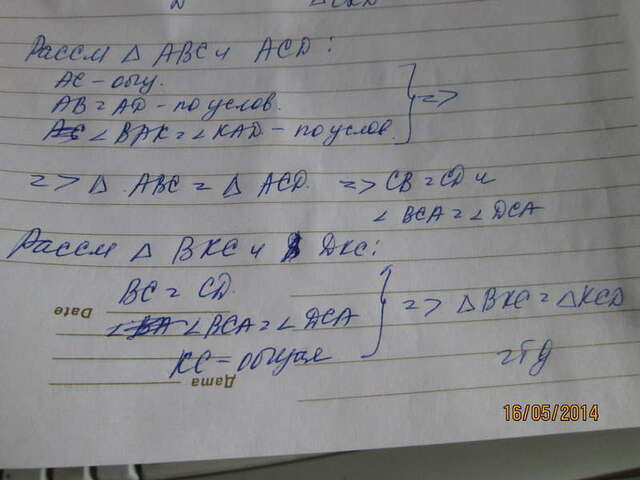 Рассм △ ABC и ACD:
AC - общ.
AB = AD - по услов.
∠ BAK = ∠ KAD - по услов. =>
=> △ ABC = △ ACD. => CB = CD и
∠ BCA = ∠ DCA
Рассм △ BKC и DKC:
BC = CD.
∠ BCA = ∠ DCA => △ BKC = △ KCD
KC = общая
чтд
Date
Дата
16/05/2014